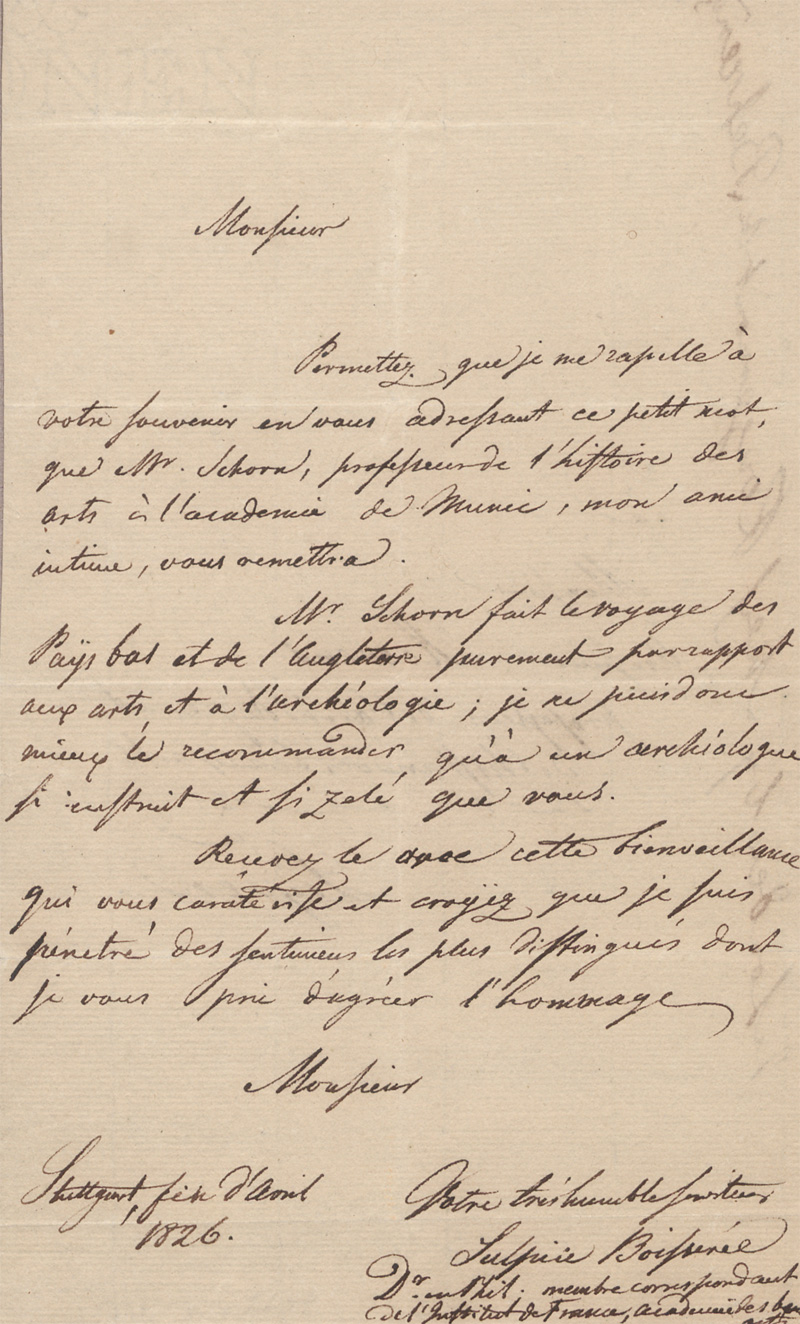 Monsieur
Permettez que je me rapelle à
votre souvenir en vous adressant ce petit mot,
que Mr. Schorn, professeur de l'histoire des
arts à l'academie de Munic, mon ami
intime, vous remettra.
Mr. Schorn fait le voyage des
Païs bas et de l'Angleterre purement par rapport
aux arts et à l'archéologie; je ne puis donc
mieux le recommander qu'à un archéologue
si instruit et si zelé que vous.
Recevez le avec cette bienveillance
qui vous caratérise et croyëz que je suis
pénetré des sentimens les plus distingués dont
je vous prie d'agréer l'hommage
Monsieur
Stuttgart, fin d'Avril
1826.
Votre très humble serviteur
Sulpice Boisserée
Dr. en Phil: membre correspondant
de l'Institut de France, academie des beaux
arts